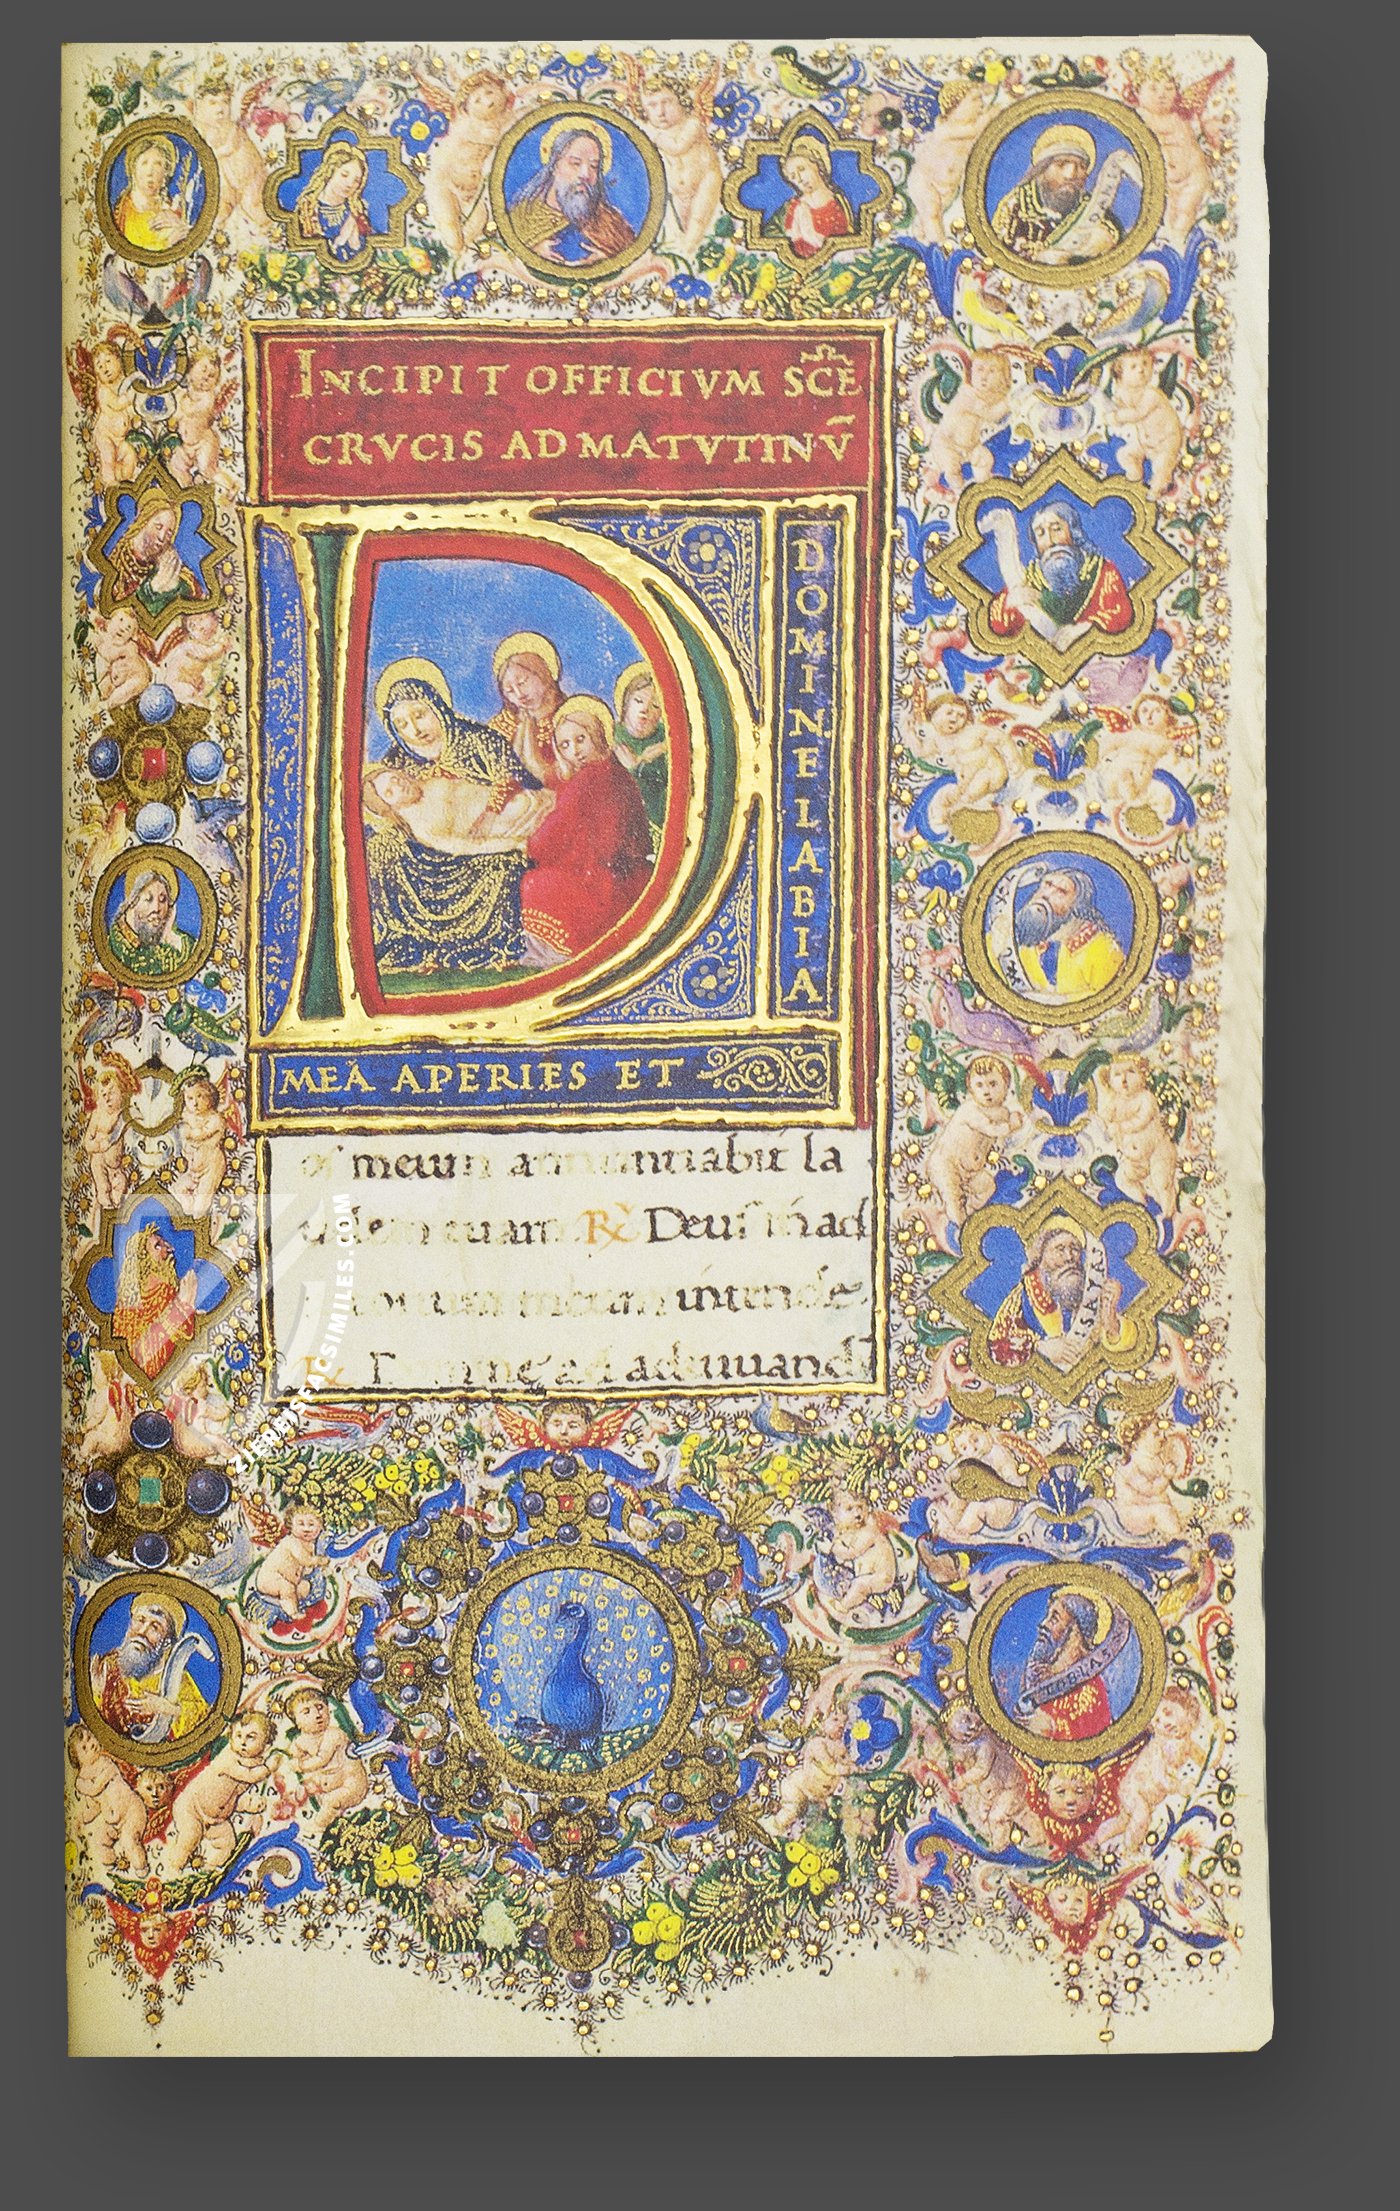 INCIPIT OFFICIVM SC̃E
CRVCIS AD MATVTINṼ
DOMINE LABIA
MEÃ APERIES ET
os meum annuntiabit la
udem tuam. R̃ Deus in ad
meum intende
ne ad adiuuand
ISAYAS
ZIEREISFACSIMILES.COM